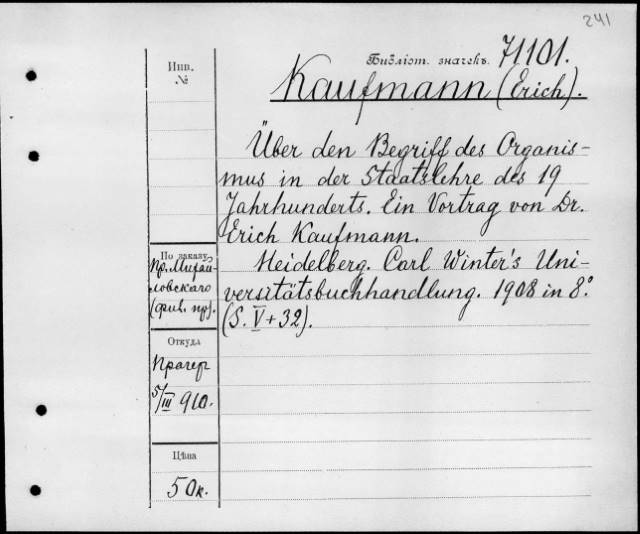 241
Библіот. значекъ. 71101.
Kaufmann (Erich).
Über den Begriff des Organis-
mus in der Staatslehre des 19
Jahrhunderts. Ein Vortrag von Dr.
Erich Kaufmann.
Heidelberg. Carl Winter's Uni-
versitätsbuchhandlung. 1908 in 8°.
(S. V+32).
Инв.
№
По заказу
Пр. Михай-
ловскаго
(фил. пр).
Откуда
Прагер
5/III 910.
Цѣна
50к.